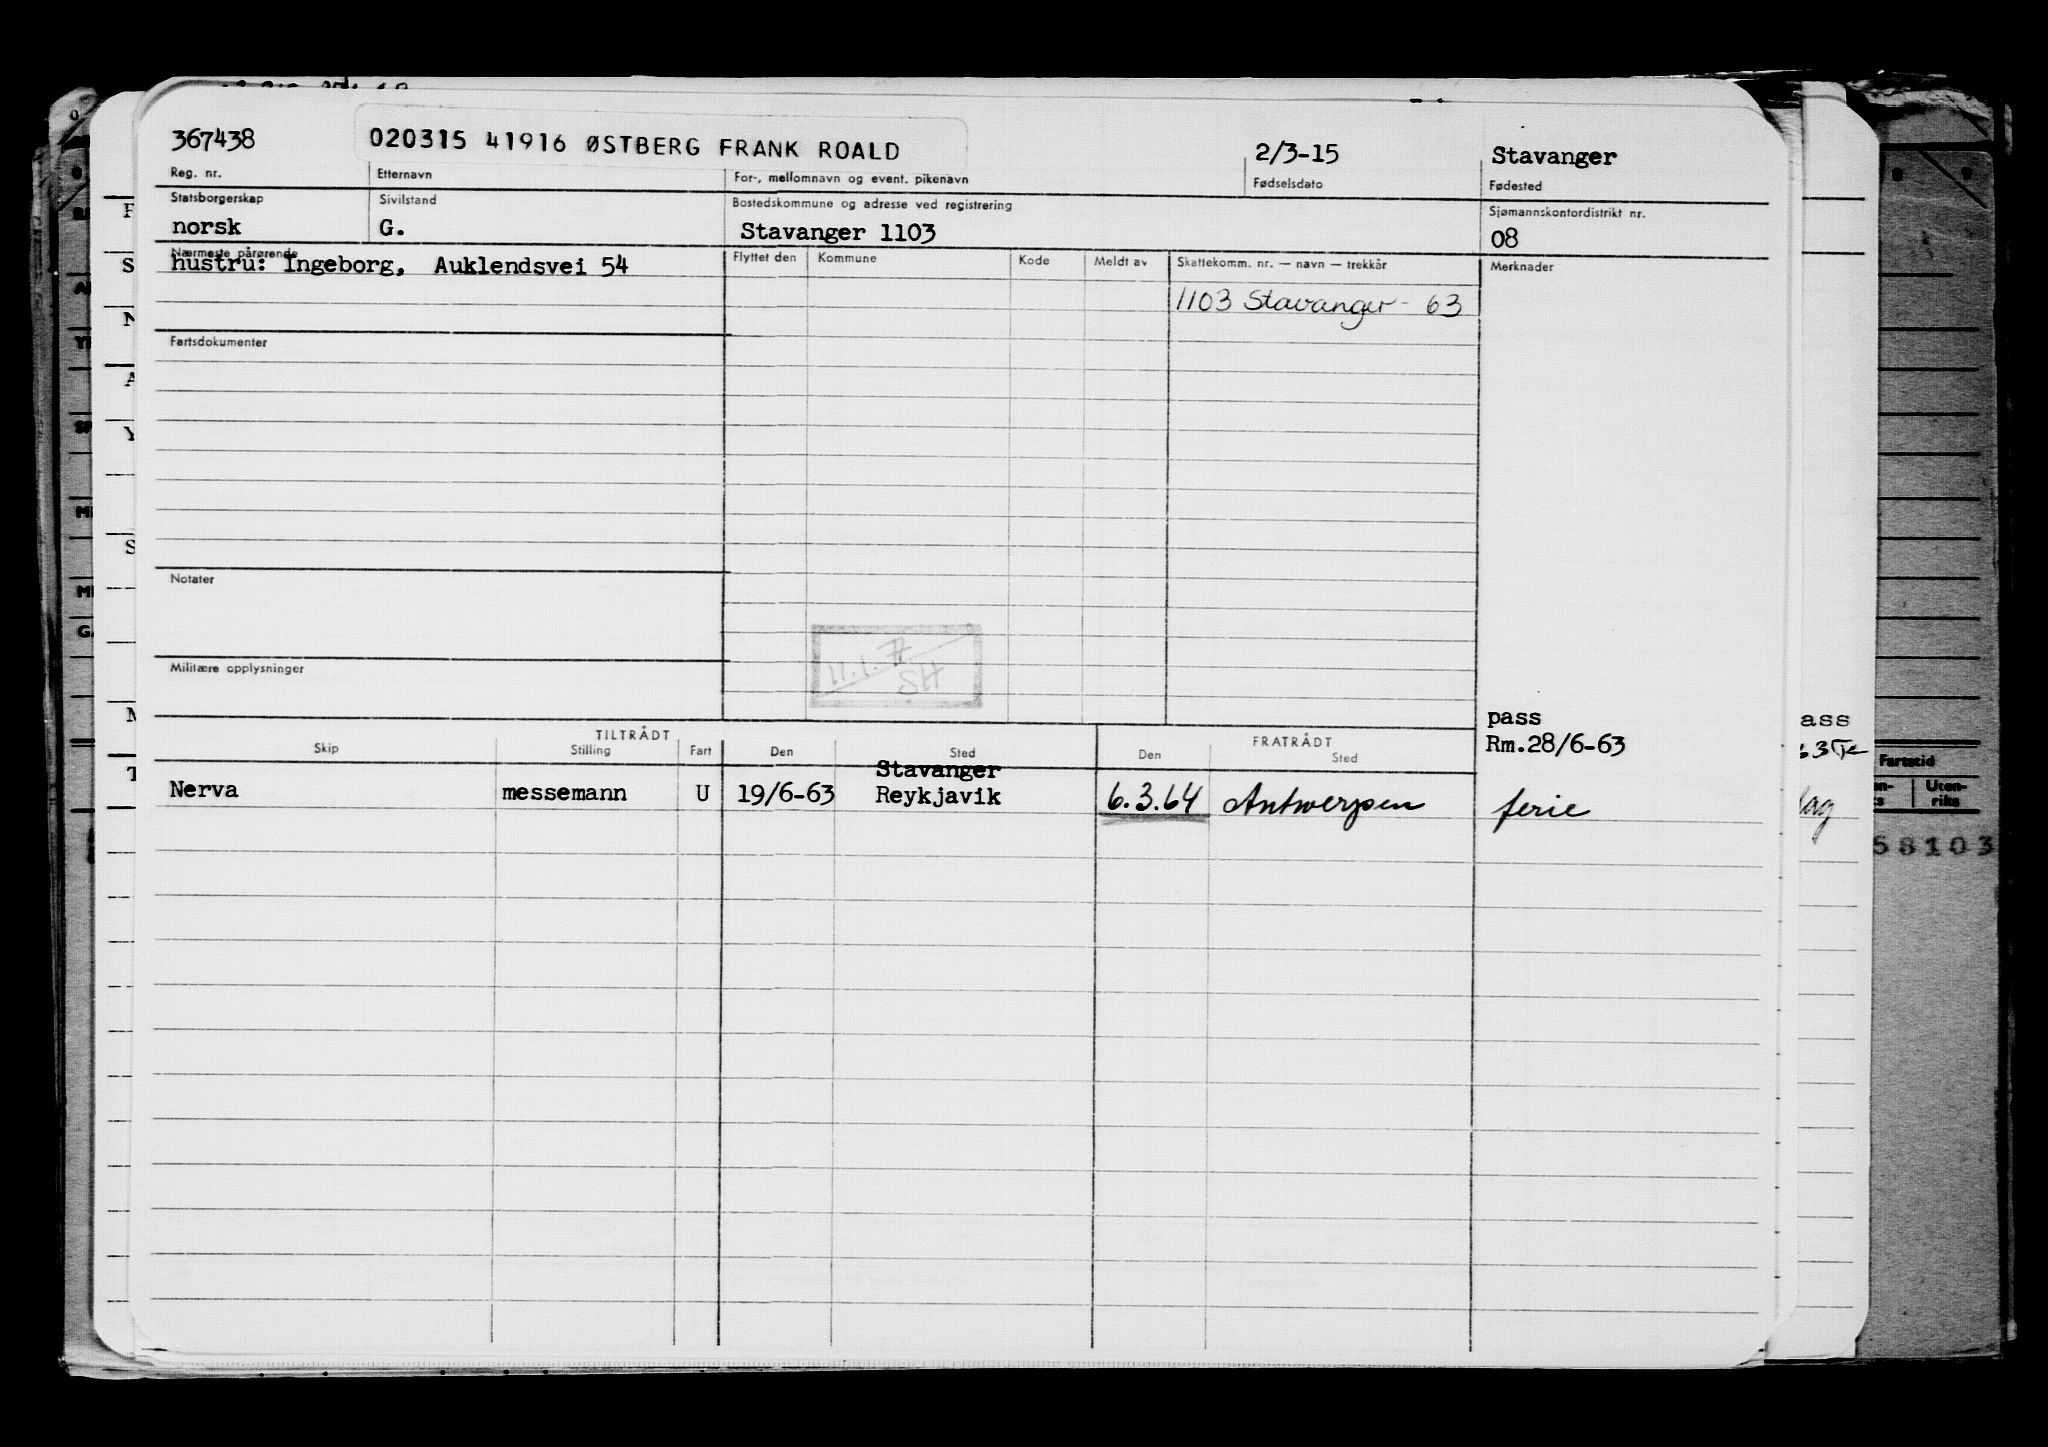 367438 020315 41916 ØSTBERG FRANK ROALD 2/3-15 Stavanger
Reg. nr. Etternavn For-, mellomnavn og event. pikenavn Fødselsdato Fødested
Statsborgerskap Sivilstand Bostedskommune og adresse ved registrering Sjømannskontordistrikt nr.
norsk G. Stavanger 1103 08
Nærmeste pårørende Flyttet den Kommune Kode Meldt av Skattekomm. nr. — navn — trekkår Merknader
hustru: Ingeborg, Auklendsvei 54
1103 Stavanger - 63
Fartsdokumenter
Notater
11.1.
SH
Militære opplysninger
pass
Rm.28/6-63
TILTRÅDT FRATRÅDT
Skip Stilling Fart Den Sted Den Sted
Stavanger
Nerva messemann U 19/6-63 Reykjavik 6.3.64 Antwerpen ferie
ass
Fartstid
Uten-
riks
58103